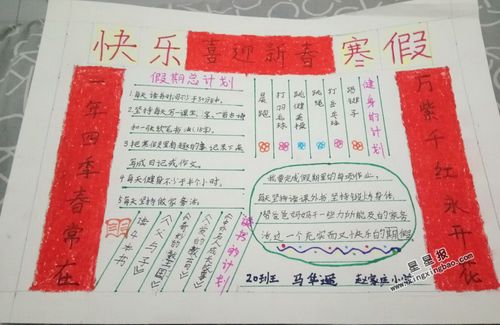 快乐
喜迎新春
寒假
一年四季春常在
万紫千红永开花
假期总计划
1.每天读书时间不少于30分钟。
2.坚持每天写一课生字,一首古诗
和一张软笔书法(18字)。
3.把寒假里有趣的事记录下来
写成日记或作文。
4.每天健身不少于半个小时。
5.每天坚持做家务活
健身的计划
踢毽子
打乒乓球
跳绳
跳健美操
打羽毛球
晨跑
我要完成假期里的每项作业,
每天坚持读课外书 坚持锻炼身体,
帮爸爸妈妈干一些力所能及的家务
活,过一个充实而又快乐的假期
读书的计划
《父与子》
读4本书
20班王
马华遥
赵寨庄小学
星星报
www.xingxingbao.com